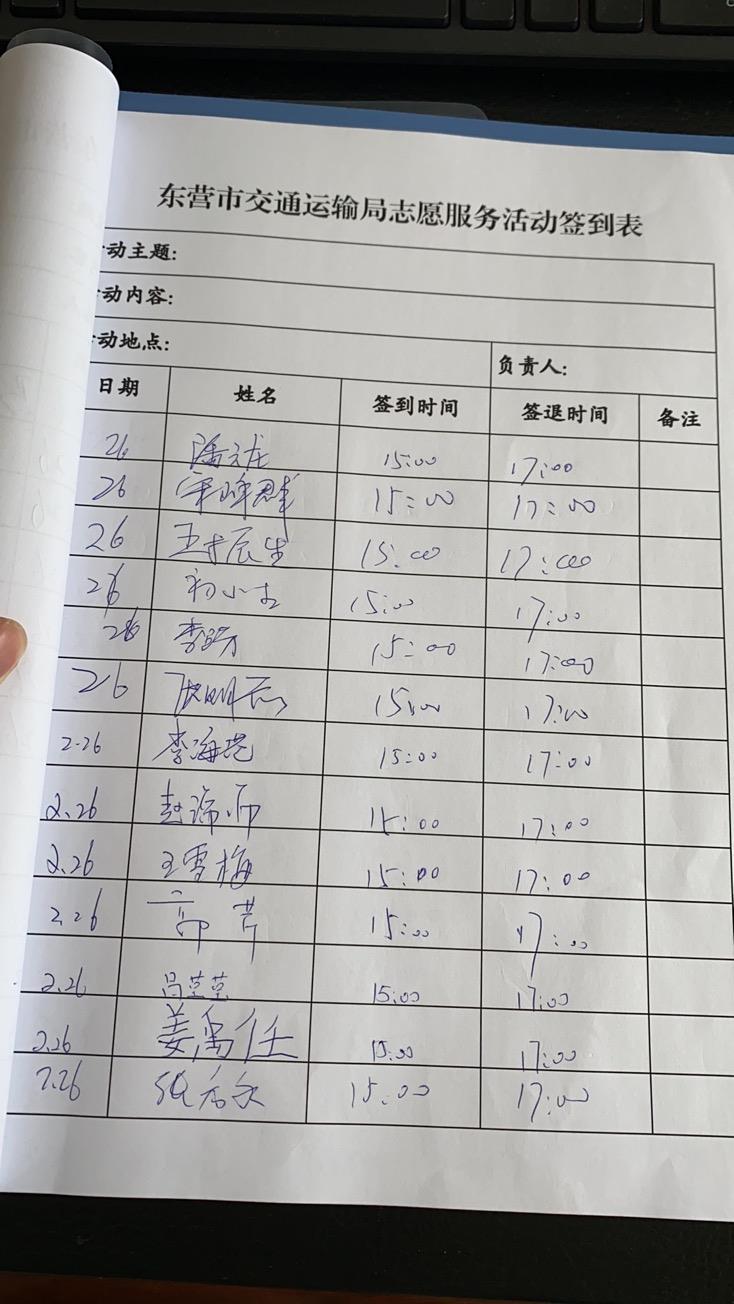 东营市交通运输局志愿服务活动签到表
动主题:
动内容:
动地点: 负责人:
日期 姓名 签到时间 签退时间 备注
26 潘文龙 15:00 17:00
26 15:00 17:00
26 15:00 17:00
26 初小 15:00 17:00
26 李 15:00 17:00
26 明 15:00 17:00
2.26 李海 15:00 17:00
2.26 赵 15:00 17:00
2.26 王雪梅 15:00 17:00
2.26 郭芹 15:00 17:00
2.26 吕莹莹 15:00 17:00
2.26 姜禹任 15:00 17:00
2.26 张 15:00 17:00